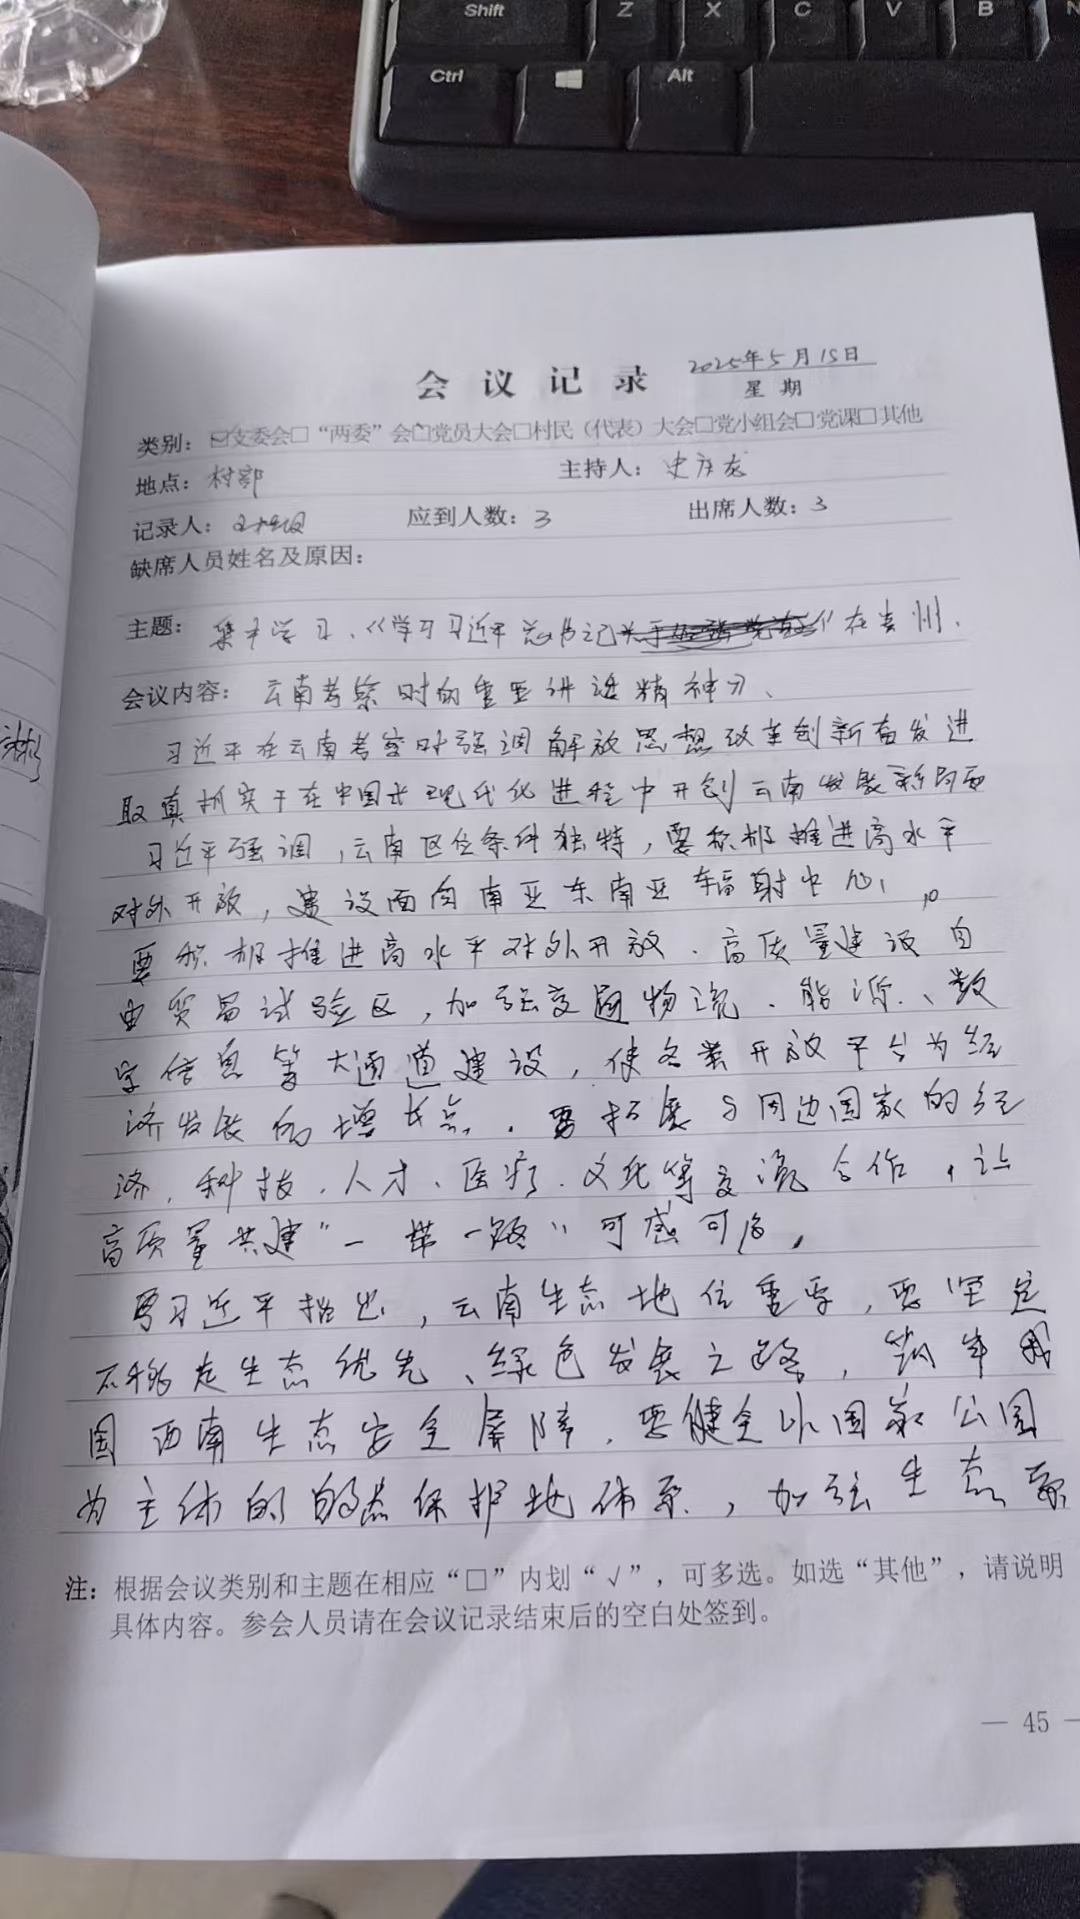 Shift Z X C V B N
Ctrl Alt
会议记录 2025年5月15日
星期
类别：☑支委会□“两委”会□党员大会□村民（代表）大会□党小组会□党课□其他
地点：村部 主持人：史庆龙
记录人： 应到人数：3 出席人数：3
缺席人员姓名及原因：
主题：集中学习、《学习习近平总书记 》在贵州、
会议内容：云南考察时的重要讲话精神》、
习近平在云南考察时强调解放思想改革创新奋发进
取真抓实干在中国式现代化进程中开创云南发展新局面
习近平强调，云南区位条件独特，要积极推进高水平
对外开放，建设面向南亚东南亚辐射中心，。
要积极推进高水平对外开放．高质量建设自
由贸易试验区，加强交通物流、能源、数
字信息等大通道建设，使各类开放平台为经
济发展的增长点．要拓展与周边国家的经
济、科技、人才、医疗、文化等交流合作，让
高质量共建“一带一路”可感可及，
习近平指出，云南生态地位重要，要坚定
不移走生态优先、绿色发展之路，筑牢我
国西南生态安全屏障．要健全以国家公园
为主体的 保护地体系，加强生态
注：根据会议类别和主题在相应“□”内划“√”，可多选。如选“其他”，请说明
具体内容。参会人员请在会议记录结束后的空白处签到。
— 45 —